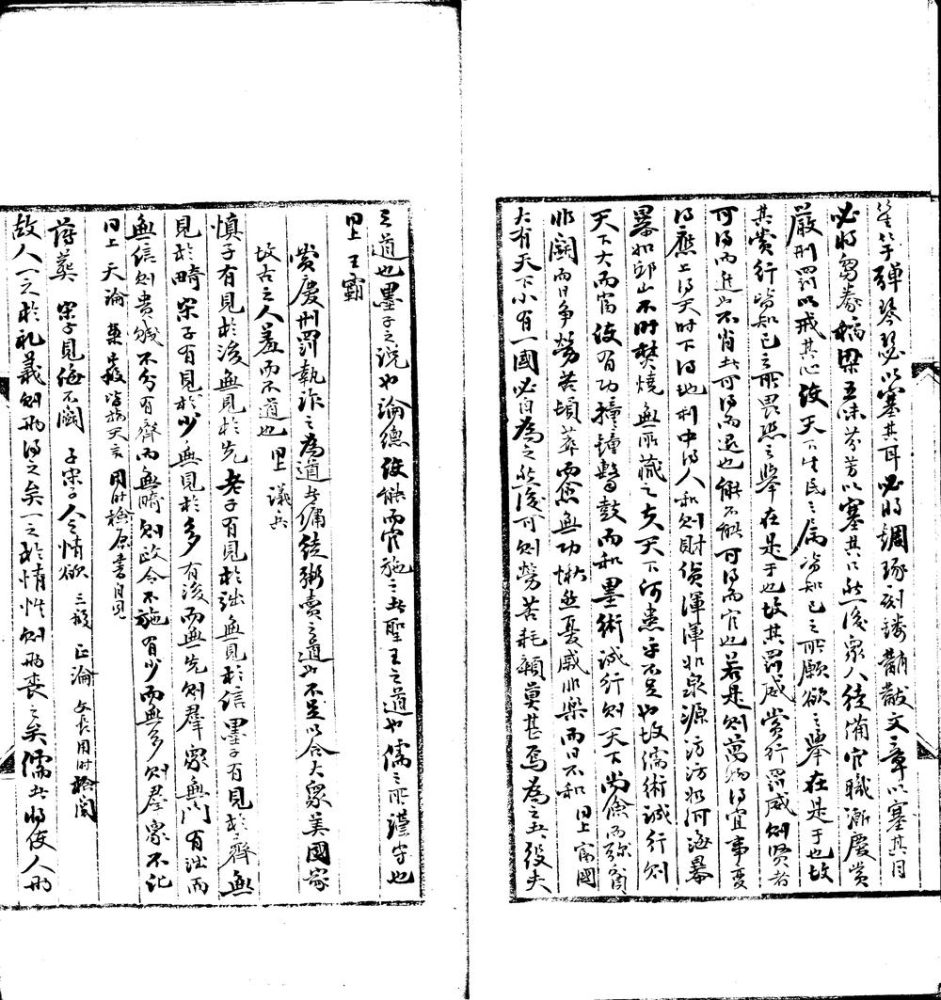 笙竽彈琴瑟以塞其耳必將錭琢刻鏤黼黻文章以塞其目
必將芻豢稻梁五味芬芳以塞其口然後衆人徒備官職漸慶賞
嚴刑罰以戒其心使天下生民之屬皆知已之所願欲之擧在是于也故
其賞行皆知已之所畏恐之擧在是于也故其罰威賞行罰威則賢者
可得而進也不肖者可得而退也能不能可得而官也若是則萬物得宜事變
得應上得天時下得地利中得人和則財貨渾渾如泉源汸汸如河海暴
暴如邱山不時焚燒無所藏之夫天下何患乎不足也故儒術誠行則
天下大而富使有功撞鐘擊鼓而和墨術誠行則天下尚儉而彌貧
非鬬而日爭勞苦頓萃而愈無功愀然憂慼非樂而日不和 同上富國
大有天下小有一國必自為之然後可則勞苦耗顇莫甚焉為之者役夫
之道也墨子之說也論德使能而官施之者聖王之道也儒之所謹守也
同上王霸
賞慶刑罰執詐之為道者傭徒粥賣之道也不足以合大衆美國家
故古之人羞而不道也 同上 議兵
慎子有見於後無見於先老子有見於詘無見於信墨子有見於齊無
見於畸宋子有見於少無見於多有後而無先則羣衆無門有詘而
無信則貴賤不分有齊而無畸則政令不施有少而無多則羣衆不化
同上 天論 用時檢原書自見
薄葬 宋子見侮不鬬 子宋子人之情欲 三段 正論 文長用時檢閱
故人一之於礼義則兩得之矣一之於情性則兩喪之矣儒者將使人兩